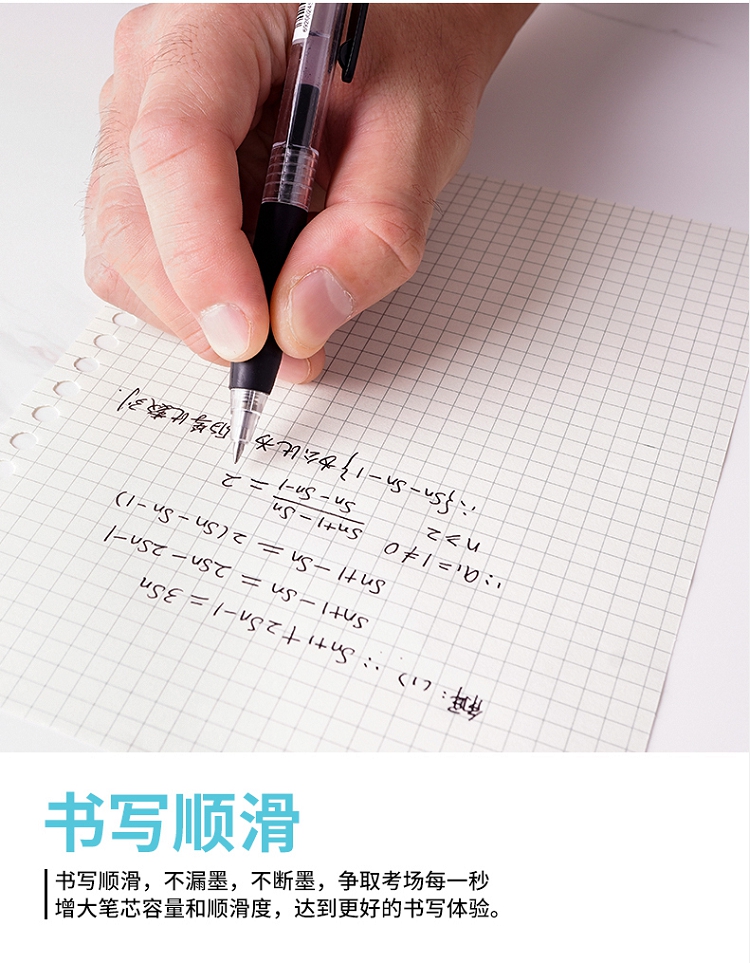 解：(1) ∵ Sn+1 + 2Sn-1 = 3Sn
Sn+1 - Sn = 2Sn - 2Sn-1
Sn+1 - Sn = 2(Sn - Sn-1)
∵ a1 = 1 ≠ 0
n ≥ 2
Sn+1 - Sn / Sn - Sn-1 = 2
∴ {Sn - Sn-1} 为公比为 的等比数列.
书写顺滑
书写顺滑，不漏墨，不断墨，争取考场每一秒
增大笔芯容量和顺滑度，达到更好的书写体验。